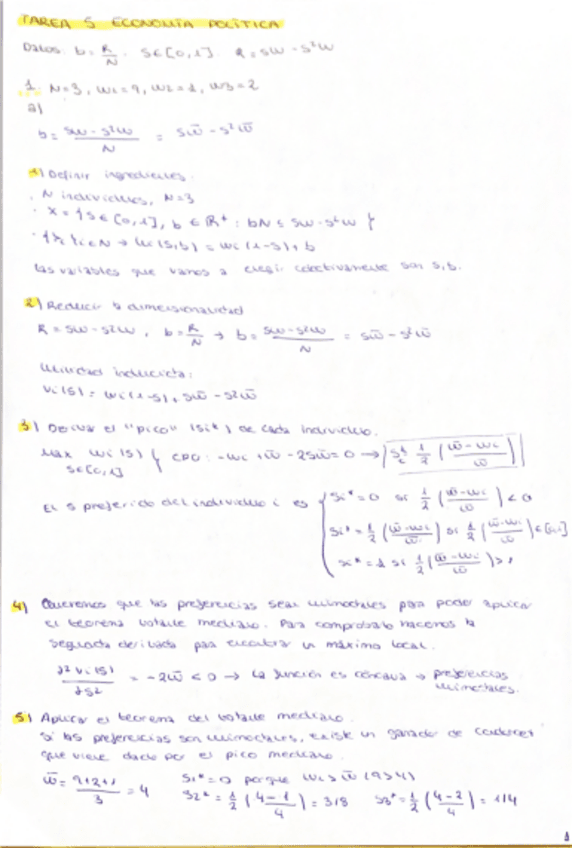 TAREA 5 ECONOMÍA POLÍTICA
Datos: b = R/N . S ∈ [0,1] . R = sW - s²W
1. N=3, w1=9, w2=1, w3=2
a)
b = (sW - s²W)/N = sw̄ - s²w̄
1) Definir ingredientes.
· N individuos, N=3
· X = { s ∈ [0,1], b ∈ R⁺ : bN ≤ sW - s²W }
i∈N → Ui(s,b) = wi(1-s) + b
Las variables que vamos a elegir colectivamente son s, b.
2) Reducir la dimensionalidad
R = sW - s²W, b = R/N → b = (sW - s²W)/N = sw̄ - s²w̄
Utilidad inducida:
Vi(s) = wi(1-s) + sw̄ - s²w̄
3) Derivar el "pico" (si*) de cada individuo.
Max s∈[0,1] CPO: -wi + w̄ - 2sw̄ = 0 → 1/2 ((w̄ - wi)/w̄)
El s preferido del individuo i es { si* = 0 si 1/2 ((w̄ - wi)/w̄) < 0
si* = 1/2 ((w̄ - wi)/w̄) si 1/2 ((w̄ - wi)/w̄) ∈ [0,1]
si* = 1 si 1/2 ((w̄ - wi)/w̄) > 1
4) Queremos que las preferencias sean unimodales para poder aplicar
el teorema votante mediano. Para comprobarlo hacemos la
segunda derivada para encontrar un máximo local.
∂²Vi(s)/∂s² = -2w̄ < 0 → La función es cóncava → preferencias
unimodales.
5) Aplicar el teorema del votante mediano.
Si las preferencias son unimodales, existe un ganador de Condorcet
que viene dado por el pico mediano.
w̄ = (9+2+1)/3 = 4 s1* = 0 porque w1 > w̄ (9>4)
s2* = 1/2 ((4-1)/4) = 3/8 s3* = 1/2 ((4-2)/4) = 1/4
1